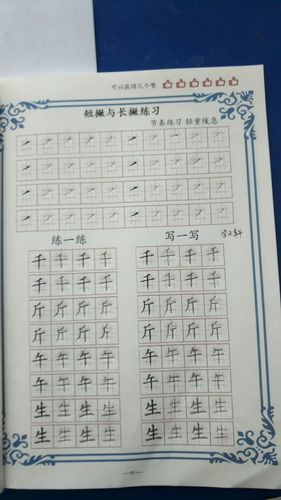 可以获得几个赞
短撇与长撇练习
节奏练习 轻重缓急
练一练 写一写
千 千 千 千 千 千 千 千
千 千 千 千 千 千 千 千
斤 斤 斤 斤 斤 斤 斤 斤
斤 斤 斤 斤 斤 斤 斤 斤
午 午 午 午 午 午 午 午
午 午 午 午 午 午 午 午
生 生 生 生 生 生 生 生
生 生 生 生 生 生 生 生